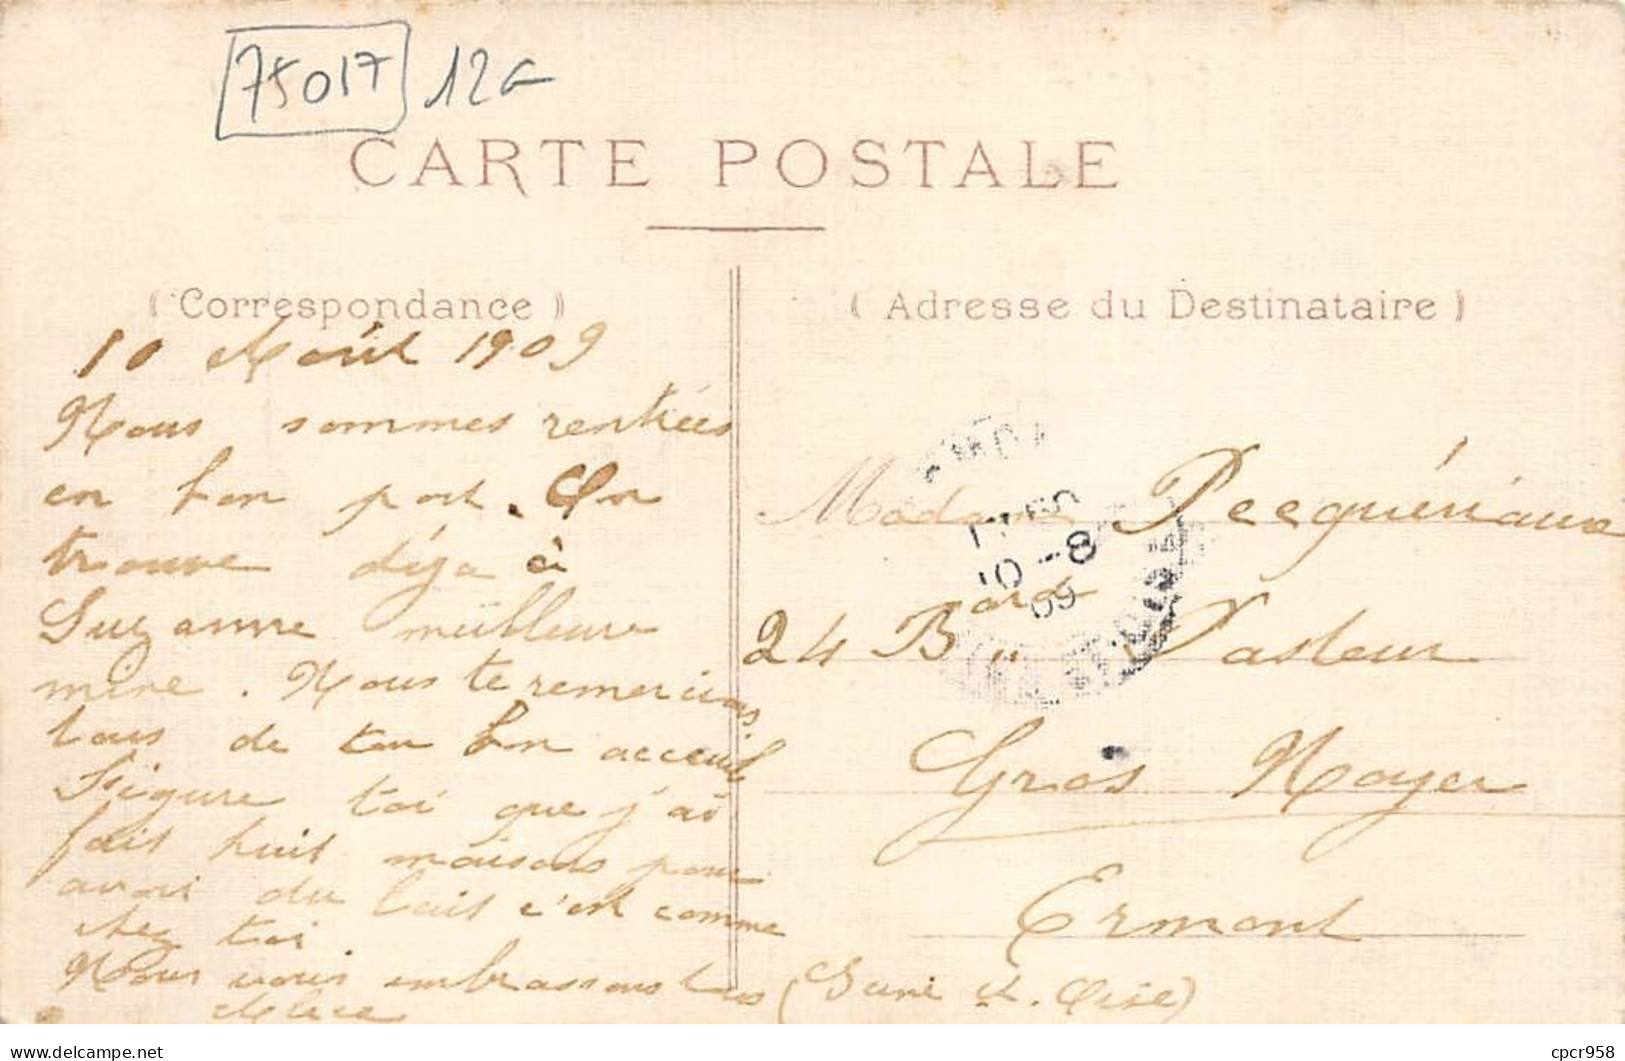 75017 12G
CARTE POSTALE
( Correspondance )
10 Août 1909
Nous sommes rentrées
en bon port. On
trouve déja à
Suzanne meilleure
mine. Nous te remercions
tous de ton bon acceuil
Figure toi que j'ai
fait huit maisons pour
avoir du lait c'est comme
chez toi.
Nous vous embrassons tous
Alice
( Adresse du Destinataire )
Madame Pecquériaux
24 Bard Pasteur
Gros Noyer
Ermont
(Seine et Oise)
10 -8
09
delcampe.net
cpcr958